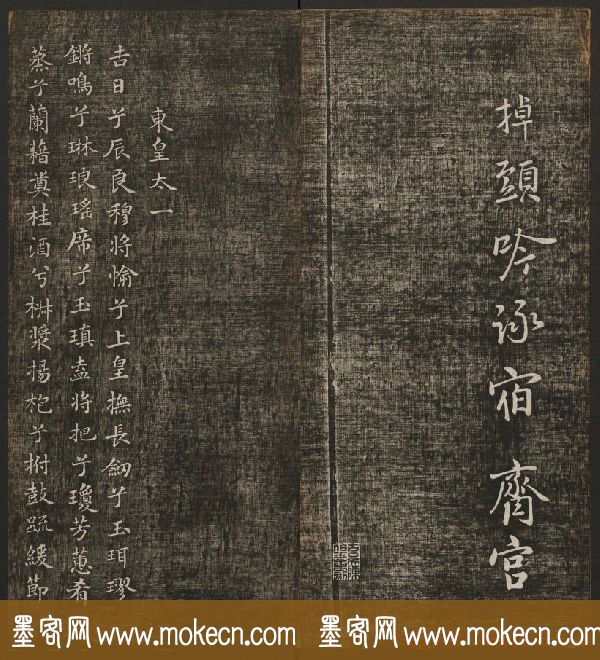 掉頭吟詠宿齋宮
東皇太一
吉日兮辰良穆將愉兮上皇撫長劒兮玉珥璆
鏘鳴兮琳琅瑤席兮玉瑱盍將把兮瓊芳蕙肴
蒸兮蘭藉奠桂酒兮椒漿揚枹兮拊鼓疏緩節
墨客网 www.mokecn.com 墨客网 www.mokecn.com